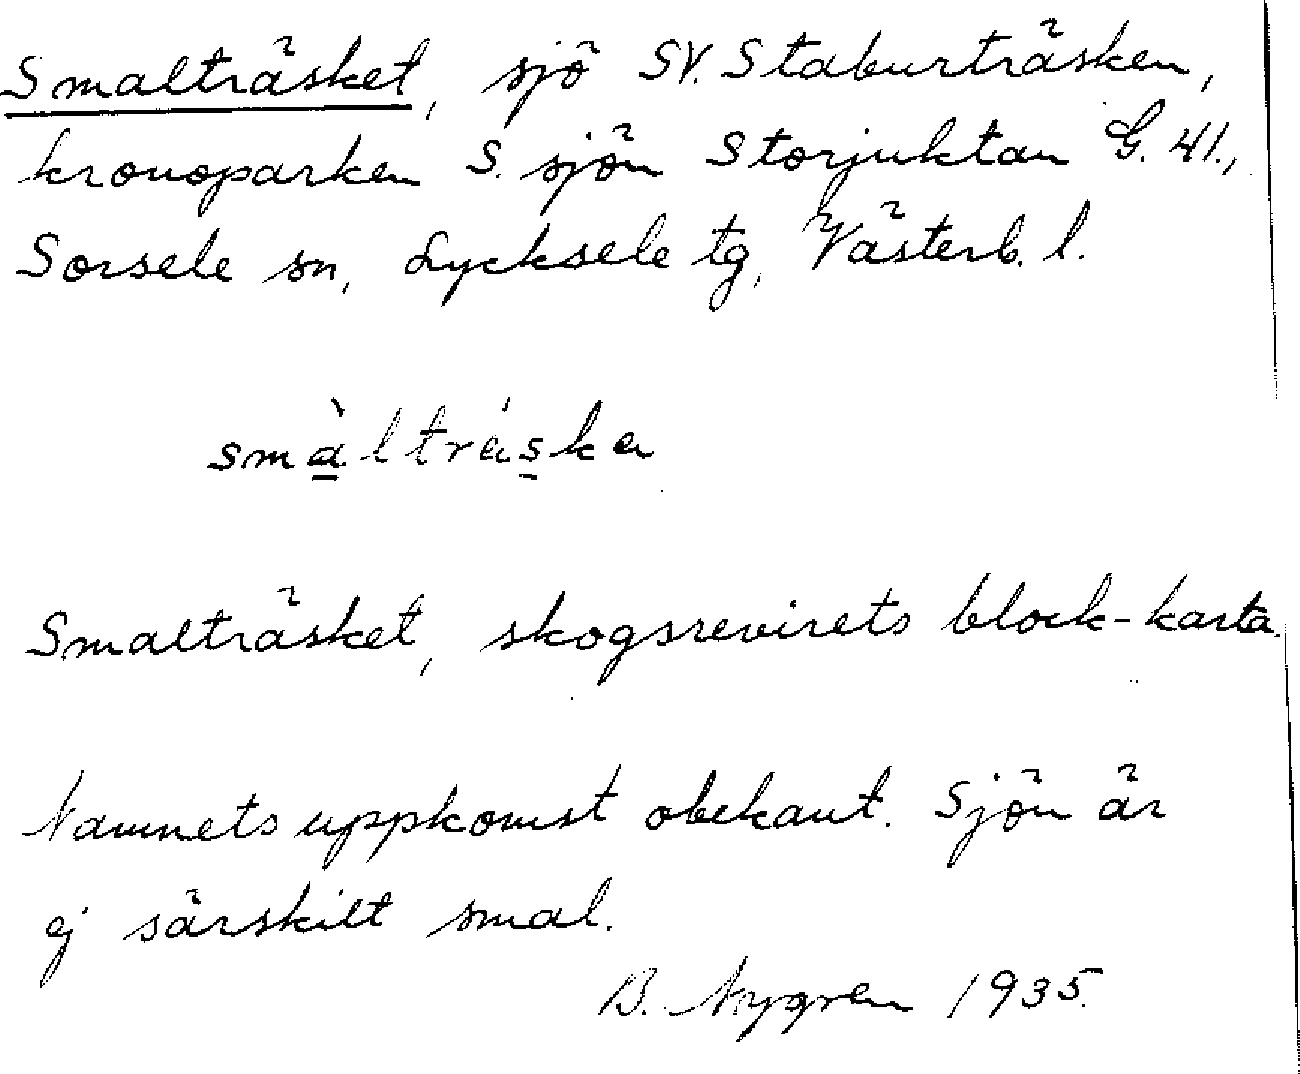 Smalträsket, sjö SV. Staburträsken,
kronoparken S. sjön Storjuktan G. 41.,
Sorsele sn, Lycksele tg, Västerb. l.
smàltráska
Smalträsket, skogsrevirets block-karta.
Namnets uppkomst obekant. Sjön är
ej särskilt smal.
B. Nygren 1935.